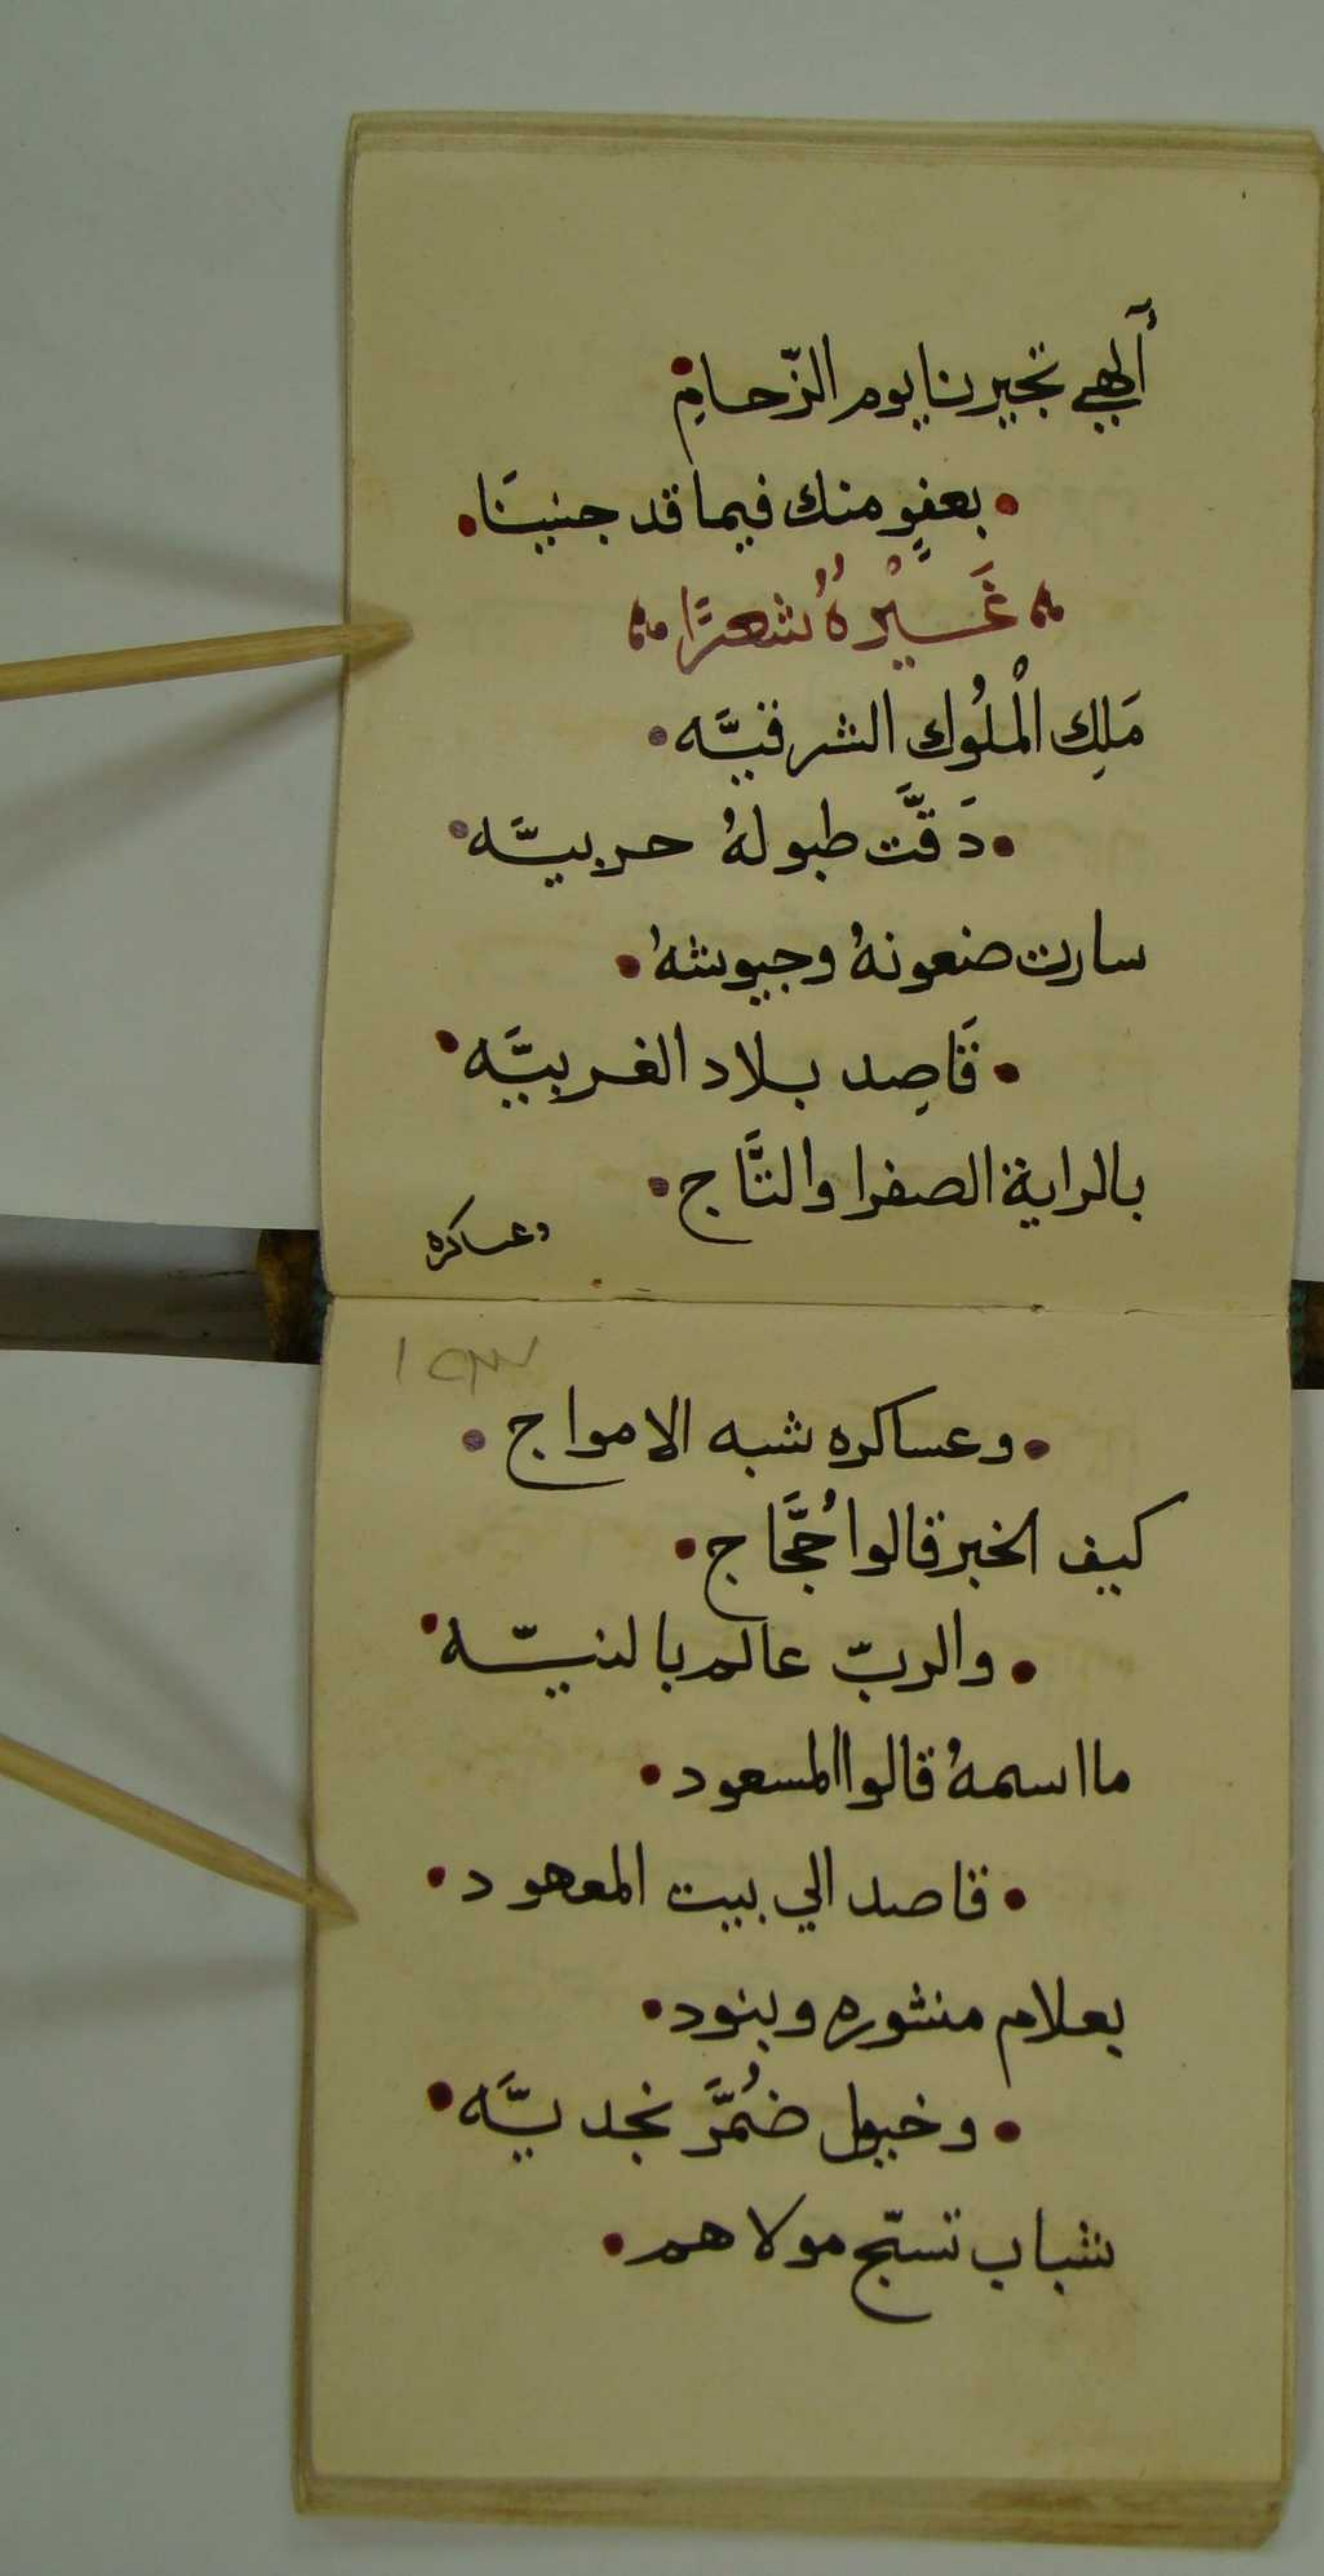 ألهي تجيرنا يوم الزّحامِ
بعفوٍ منك فيما قد جنينَا
غَيْرهُ شعرًا
مَلِك الْملُوك الشرقيَّه
دَقَّت طبولهُ حربيَّه
سارت ضعونهُ وجيوشهُ
قَاصِد بلاد الغربيَّه
بالراية الصفرا والتَّاج
وعساكره
١٥٣
وعساكره شبه الامواج
كيف الخبر قالوا حُجَّاج
والربّ عالم بالنيّه
ما اسمهُ قالوا المسعود
قاصد الي بيت المعهود
بعلام منشوره وبنود
وخيول ضُمَّر نجديَّه
شباب تسبّح مولاهم